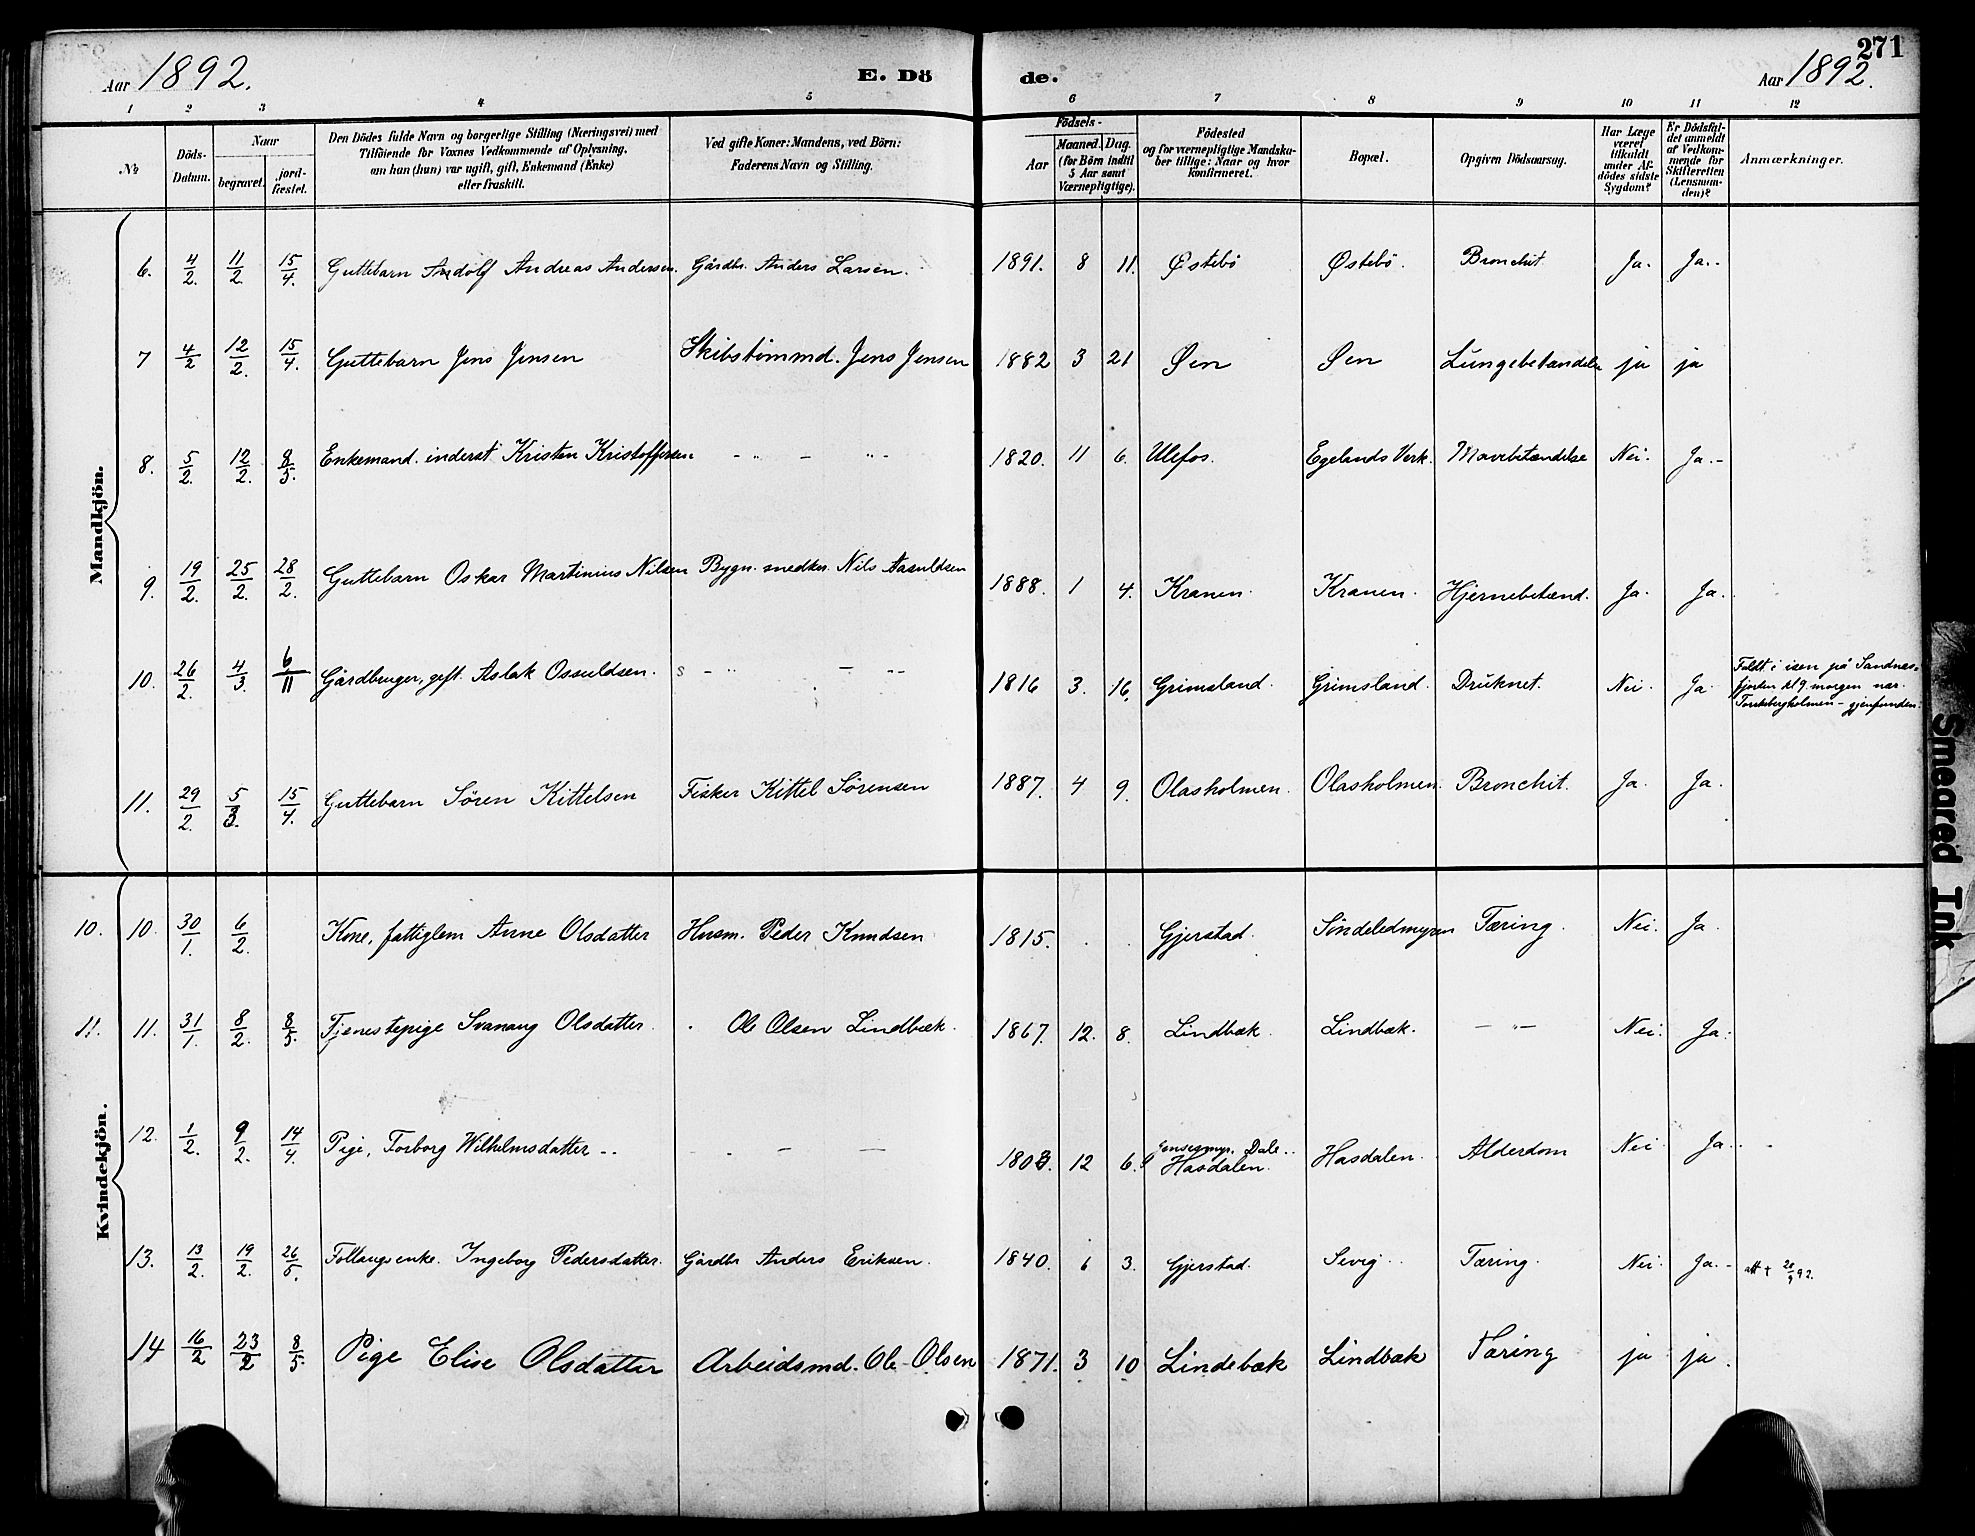 271
Aar 1892. E. Dö de. Aar 1892.
1 2 3 4 5 6 7 8 9 10 11 12
No. Döds-Datum. Naar begravet. jordfæstet. Den Dödes fulde Navn og borgerlige Stilling (Næringsvei) med Tilföiende for Voxnes Vedkommende af Oplysning, om han (hun) var ugift, gift, Enkemand (Enke) eller fraskilt. Ved gifte Koner: Mandens, ved Börn: Faderens Navn og Stilling. Födsels- Aar Maaned. Dag. (for Börn indtil 5 Aar samt Værnepligtige). Födested og for værnepligtige Mandskaber tillige: Naar og hvor konfirmeret. Bopæl. Opgiven Dödsaarsag. Har Læge været tilkaldt under Afdödes sidste Sygdom? Er Dödsfaldet anmeldt af Vedkommende for Skifteretten (Lensmanden)? Anmærkninger.
Mandkjön.
6. 4/2. 11/2 15/4. Guttebarn Andolf Andreas Andersen. Gårdbr. Anders Larsen. 1891. 8 11. Østebö Østebö. Bronchit Ja. Ja.
7 4/2 12/2. 15/4. Guttebarn Jens Jensen Skibstömmd. Jens Jensen 1882 3 21 Øen Øen Lungebetændelse ja ja
8. 5/2. 12/2. 8/5. Enkemand. inderst Kristen Kristoffersen - " - " - 1820. 11 6. Ulefos. Egelands Verk. Mavebetændelse Nei. Ja.
9. 19/2. 25/2. 28/2. Guttebarn Oskar Martinius Nilsen Bygn. snedker. Nils Aasuldsen 1888. 1 4. Kranen. Kranen. Hjernebetænd. Ja. Ja.
10. 26/2. 4/3. 6/11 Gårdbruger, gift. Aslak Ossuldsen. - " - " - 1816 3. 16. Grimsland. Grimsland. Druknet. Nei. Ja Faldt i isen på Sandnes-
fjorden kl 9. morgen nær
- gjenfunden.
11. 29/2. 5/3. 15/4. Guttebarn Sören Kittelsen Fisker Kittel Sörensen 1887. 4 9. Olasholmen. Olasholmen. Bronchit. Ja. Ja.
Kvindekjön.
10. 10. 30/1. 6/2. Kone, fattiglem Anne Olsdatter Husm. Peder Knudsen 1815. Gjerstad. Söndeledmyren Tæring. Nei. Ja.
11. 11. 31/1. 8/2. 8/5. Tjenestepige Svanaug Olsdatter. Ole Olsen Lindbæk. 1867. 12. 8. Lindbæk. Lindbæk. - " - Nei. Ja.
12. 1/2. 9/2. 14/4. Pige, Torborg Wilhelmsdatter - - - 1803. 12 6. Dale
Hasdalen. Hasdalen. Alderdom Nei Ja.
13. 13/2. 19/2. 26/5. enke. Ingeborg Pedersdatter. Gårdbr Anders Eriksen. 1840. 6 3. Gjerstad. Sevig. Tæring. Nei. Ja. att + 92.
14 16/2 23/2 8/5. Pige Elise Olsdatter Arbeidsmd. Ole Olsen 1871. 3 10 Lindebæk Lindbæk Tæring ja ja.
Smeared Ink